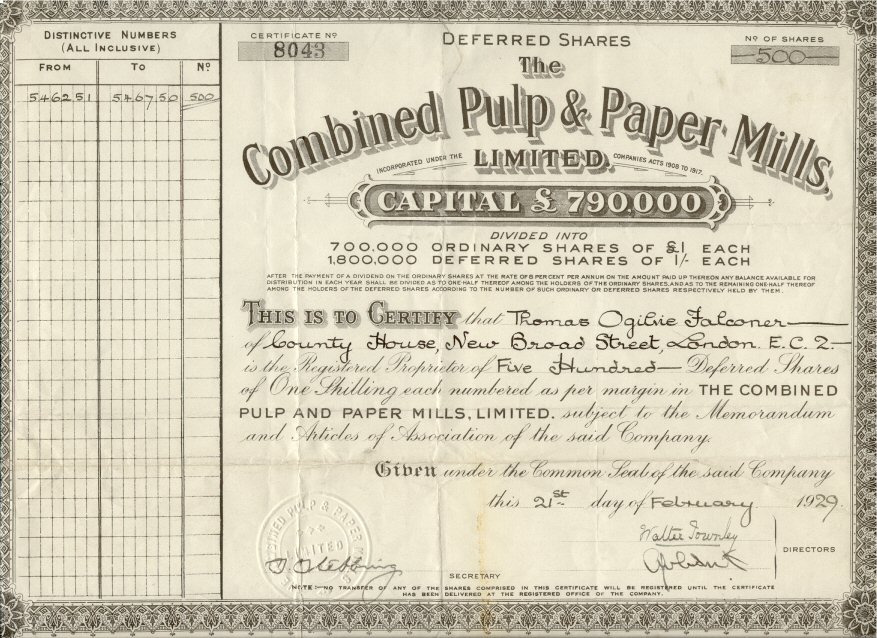 DISTINCTIVE NUMBERS
(ALL INCLUSIVE)
FROM TO Nº
546251 546750 500
CERTIFICATE Nº
8043
DEFERRED SHARES
Nº OF SHARES
—500—
The
Combined Pulp & Paper Mills,
INCORPORATED UNDER THE LIMITED. COMPANIES ACTS 1908 TO 1917.
CAPITAL £ 790,000
DIVIDED INTO
700,000 ORDINARY SHARES OF £1 EACH
1,800,000 DEFERRED SHARES OF 1/- EACH
AFTER THE PAYMENT OF A DIVIDEND ON THE ORDINARY SHARES AT THE RATE OF 8 PERCENT PER ANNUM ON THE AMOUNT PAID UP THEREON ANY BALANCE AVAILABLE FOR
DISTRIBUTION IN EACH YEAR SHALL BE DIVIDED AS TO ONE-HALF THEREOF AMONG THE HOLDERS OF THE ORDINARY SHARES, AND AS TO THE REMAINING ONE-HALF THEREOF
AMONG THE HOLDERS OF THE DEFERRED SHARES ACCORDING TO THE NUMBER OF SUCH ORDINARY OR DEFERRED SHARES RESPECTIVELY HELD BY THEM.
THIS IS TO CERTIFY that Thomas Ogilvie Falconer—
of County House, New Broad Street, London. E.C. 2.—
is the Registered Proprietor of Five Hundred— Deferred Shares
of One Shilling each numbered as per margin in THE COMBINED
PULP AND PAPER MILLS, LIMITED. subject to the Memorandum
and Articles of Association of the said Company.
Given under the Common Seal of the said Company
this 21st day of February 1929.
COMBINED PULP & PAPER MILLS
LIMITED
Walter Townley
DIRECTORS
SECRETARY
NOTE:—NO TRANSFER OF ANY OF THE SHARES COMPRISED IN THIS CERTIFICATE WILL BE REGISTERED UNTIL THE CERTIFICATE
HAS BEEN DELIVERED AT THE REGISTERED OFFICE OF THE COMPANY.